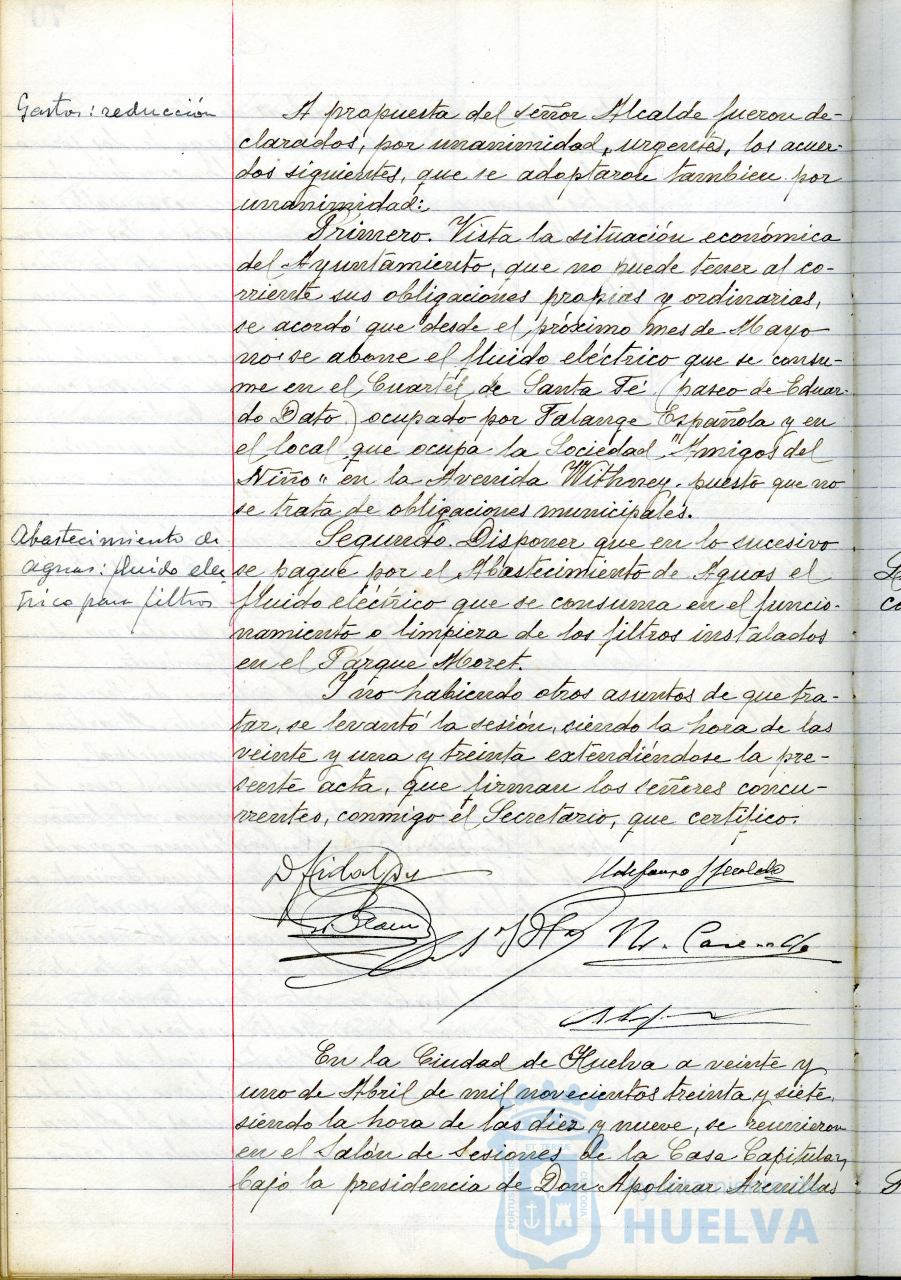 Gastos: reducción
A propuesta del señor Alcalde fueron de-
clarados, por unanimidad, urgentes, los acuer-
dos siguientes, que se adoptaron tambien por
unanimidad:
Primero. Vista la situación económica
del Ayuntamiento, que no puede tener al co-
rriente sus obligaciones propias y ordinarias,
se acordó que desde el próximo mes de Mayo
no se abone el fluido eléctrico que se consu-
me en el Cuartel de Santa Fé (paseo de Eduar-
do Dato) ocupado por Falange Española y en
el local que ocupa la Sociedad "Amigos del
Niño" en la Avenida Withney, puesto que no
se trata de obligaciones municipales.
Abastecimiento de
aguas: fluido elec
trico para filtros
Segundo. Disponer que en lo sucesivo
se pague por el Abastecimiento de Aguas el
fluido eléctrico que se consuma en el funcio-
namiento o limpieza de los filtros instalados
en el Parque Moret.
Y no habiendo otros asuntos de que tra-
tar, se levantó la sesión, siendo la hora de las
veinte y una y treinta extendiéndose la pre-
sente acta, que firman los señores concu-
rrentes, conmigo el Secretario, que certifico.
En la Ciudad de Huelva a veinte y
uno de Abril de mil novecientos treinta y siete,
siendo la hora de las diez y nueve, se reunieron
en el Salón de Sesiones de la Casa Capitular,
bajo la presidencia de Don Apolinar Arenillas
HUELVA